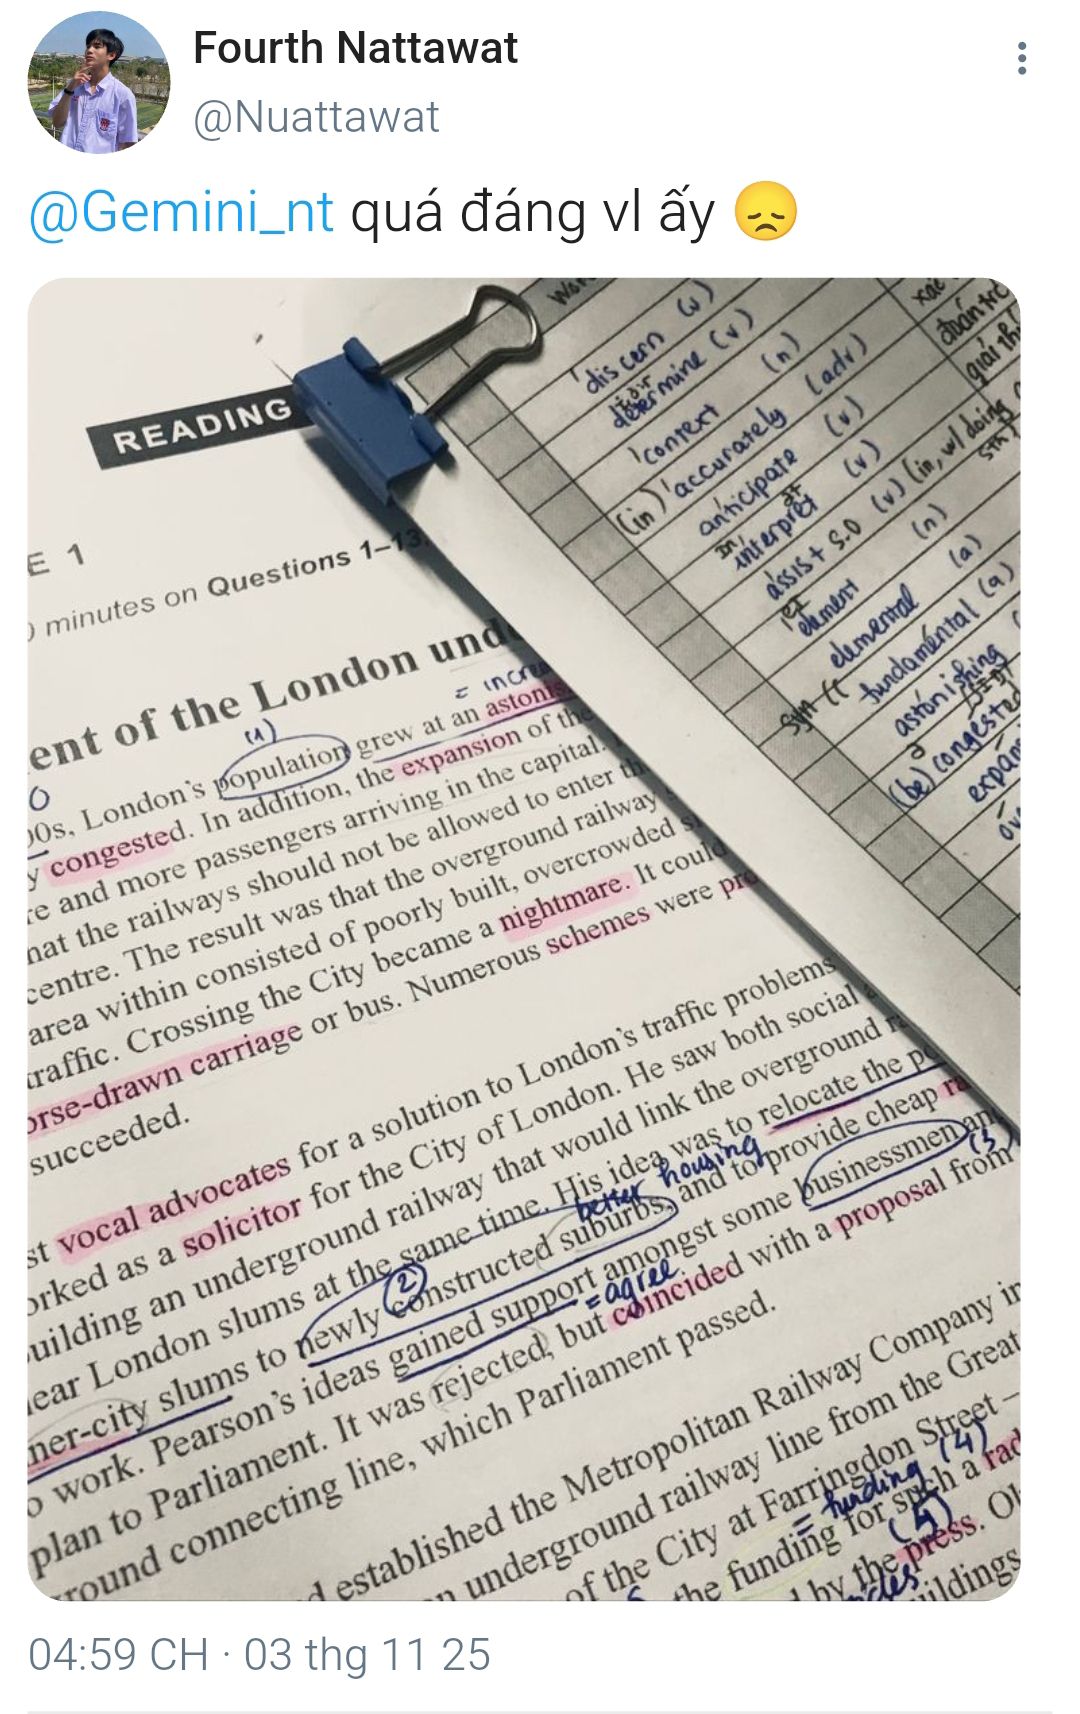 Fourth Nattawat
@Nuattawat
@Gemini_nt quá đáng vl ấy 😞
READING
E 1
minutes on Questions 1–13
ent of the London und
= incre
(1)
00s, London's population grew at an astonis
y congested. In addition, the expansion of the
re and more passengers arriving in the capital.
hat the railways should not be allowed to enter th
centre. The result was that the overground railway
area within consisted of poorly built, overcrowded s
traffic. Crossing the City became a nightmare. It could
orse-drawn carriage or bus. Numerous schemes were pro
succeeded.
st vocal advocates for a solution to London's traffic problems
orked as a solicitor for the City of London. He saw both social
uilding an underground railway that would link the overground ra
lear London slums at the same time. His idea was to relocate the p
better housing
ner-city slums to newly constructed suburbs, and to provide cheap ra
(2)
o work. Pearson's ideas gained support amongst some businessmen an
(3)
= agree.
plan to Parliament. It was rejected, but coincided with a proposal from
round connecting line, which Parliament passed.
d established the Metropolitan Railway Company in
n underground railway line from the Great
of the City at Farringdon Street –
= funding (4)
the funding for such a rad
(5)
d by the press. Ol
uildings
discern (v)
determine (v)
context (n)
(in) accurately (adv)
anticipate (v)
interpret (v)
assist s.o (v) (in, w/ doing sth)
element (n)
elemental (a)
syn fundamental (a)
astonishing
(be) congested
expan
04:59 CH · 03 thg 11 25